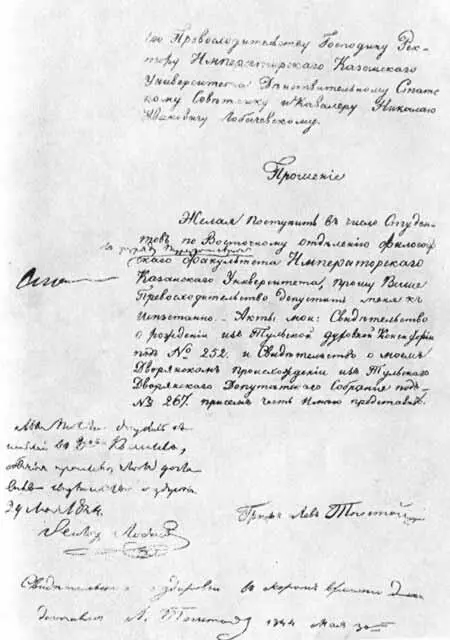 Его Превосходительству Господину Рек-
тору Императорскаго Казанскаго
Университета Дѣйствительному Статс-
кому Совѣтнику и Кавалеру Николаю
Ивановичу Лобачевскому.
Прошеніе
Желая поступить въ число Студен-
товъ по Восточному отдѣленію философ-
по разряду
скаго факультета Императорскаго
Казанскаго Университета, прошу Ваше
Превосходительство допустить меня къ
испытанію. Акты мои: Свидѣтельство
о рожденіи изъ Тульской духовной Консисторіи
подъ № 252. и Свидѣтельство о моемъ
Дворянскомъ происхожденіи изъ Тульскаго
Дворянскаго Депутатскаго Собранія подъ
№ 267. при семъ честь имѣю представить.
Графъ Левъ Толстой
29 Мая 1844.
Свидѣтельство о здоровьи въ скоромъ времени
доставлю Л. Толстой 1844 мая 30